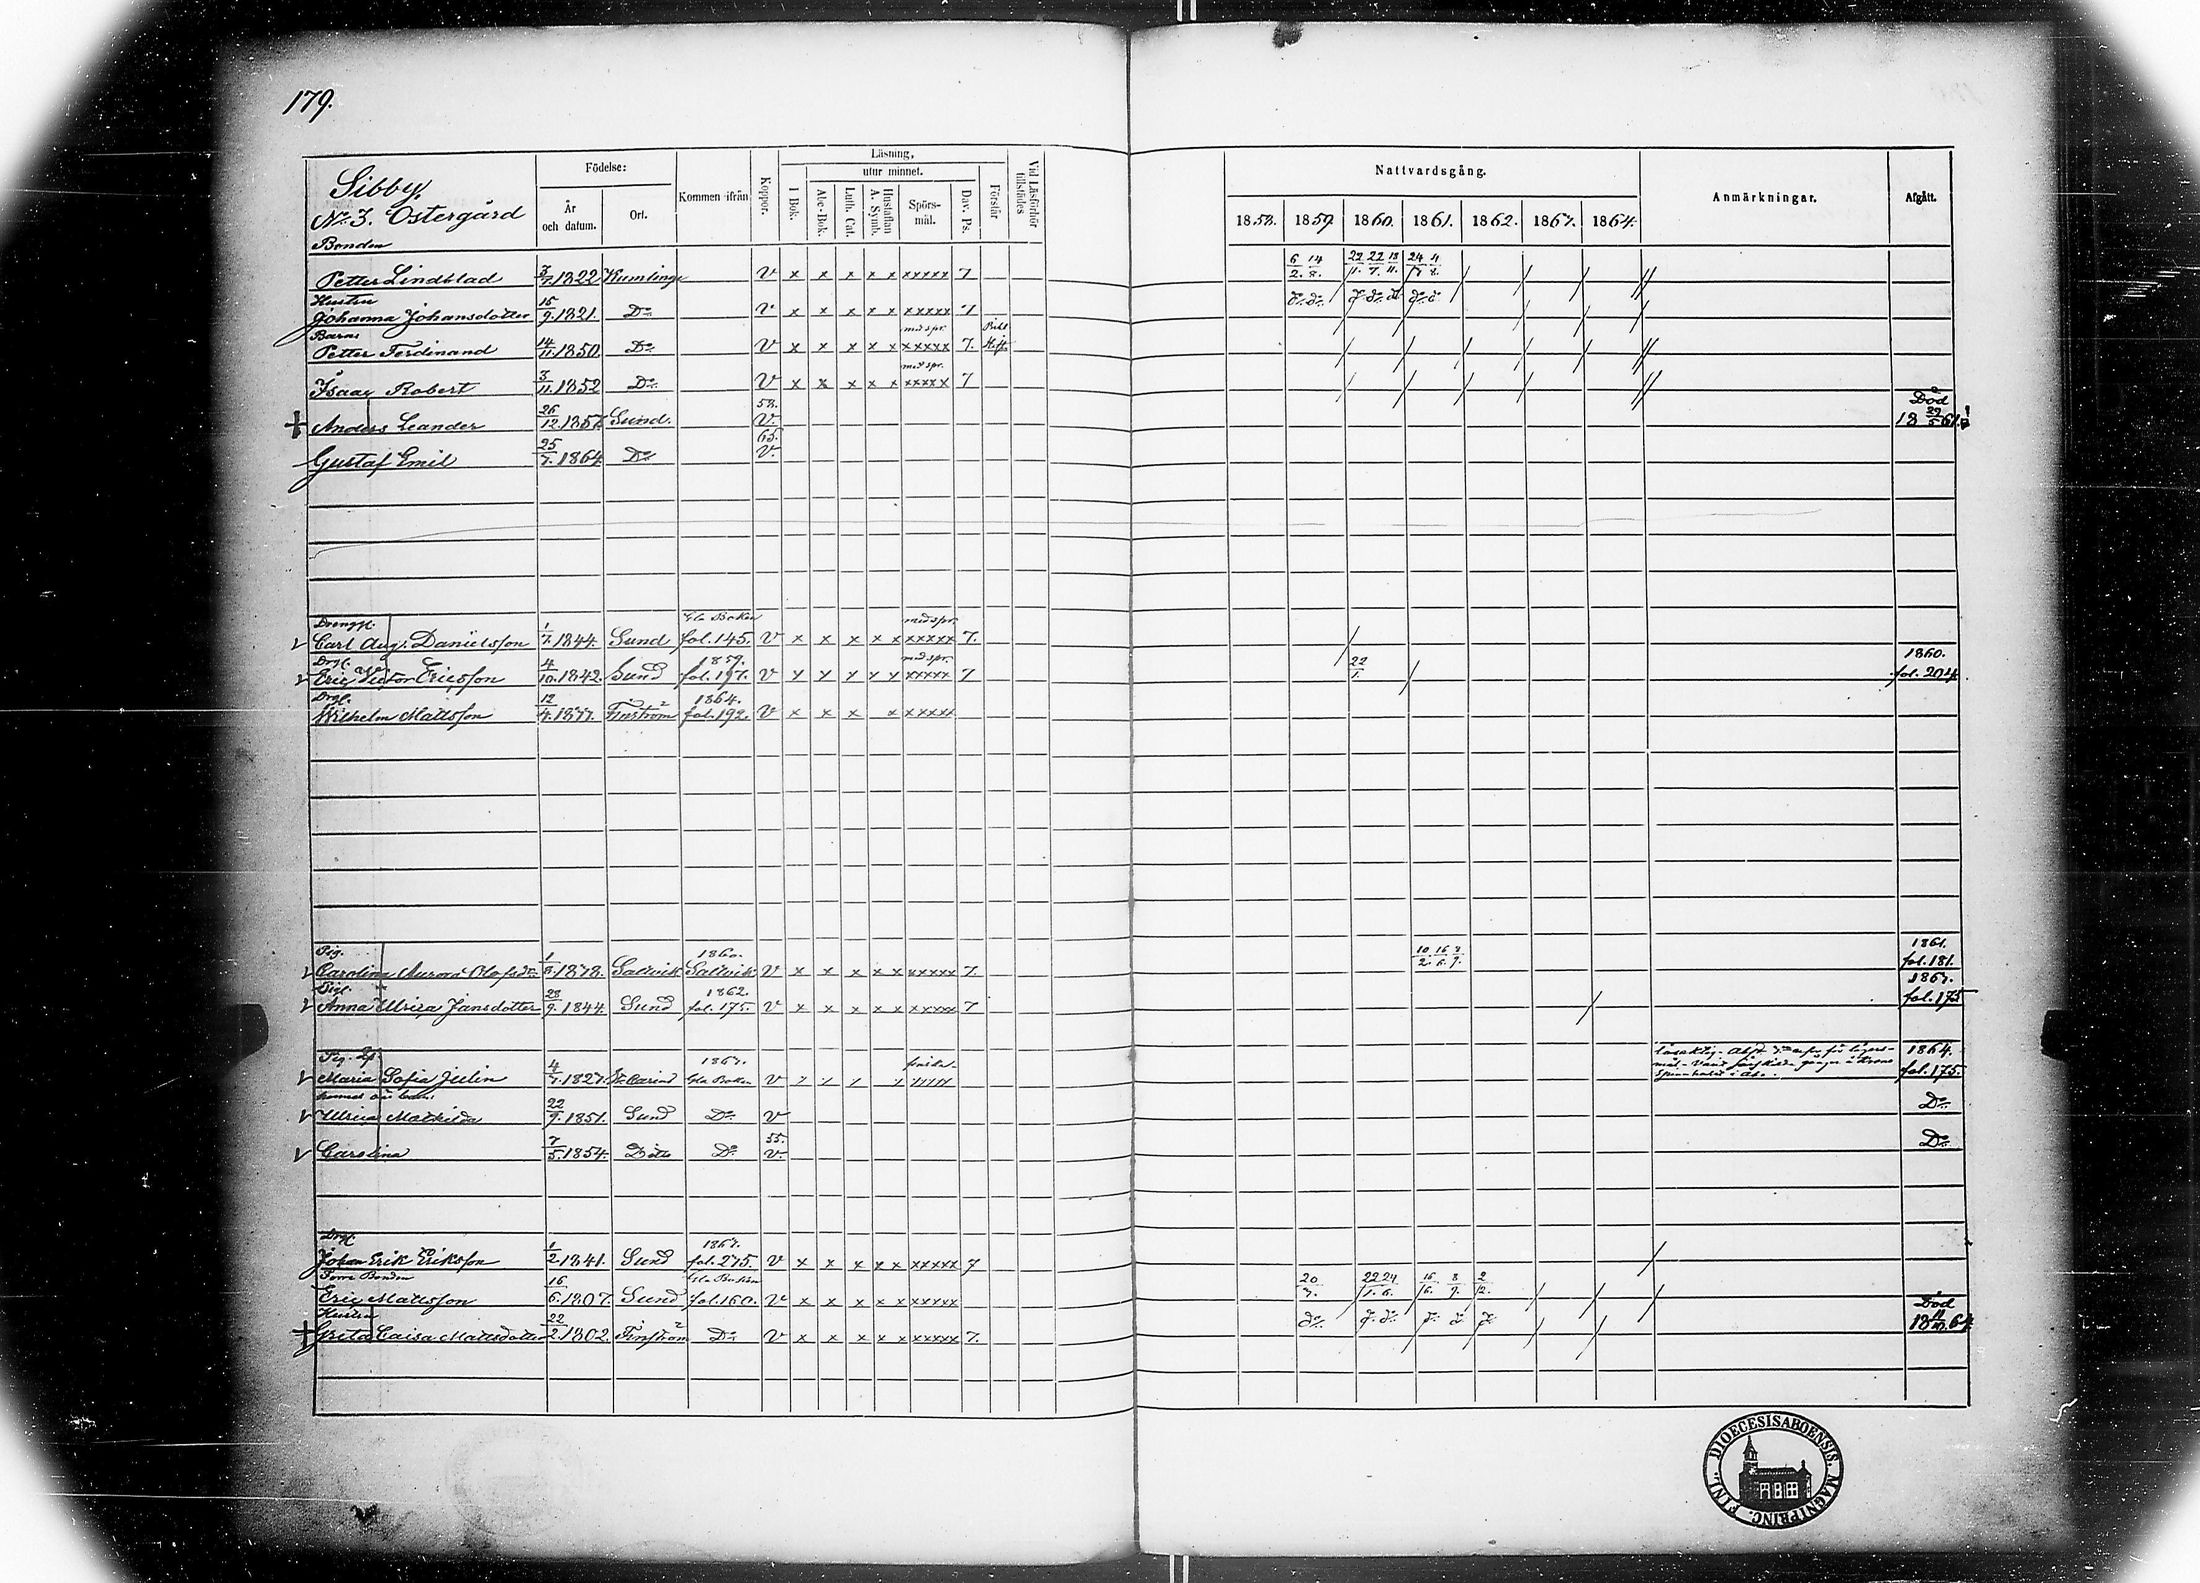 179.
Sibby,
No 3. Östergård
Födelse:
År och datum.
Ort.
Kommen ifrån
Koppor.
Läsning,
utur minnet.
I Bok.
Abc-Bok.
Luth. Cat.
Hustaflan A. Symb.
Spörs-mål.
Dav. Ps.
Förstår
Vid Läsförhör tillstädes
Nattvardsgång.
1858. 1859 1860. 1861. 1862. 1863. 1864.
Anmärkningar.
Afgått.
Bonden
Petter Lindblad 3/7 1822 Kumlinge V x x x x x xxxxx 7 6/2. 14/8. 22/1. 22/7. 18/11. 24/7 4/8.
Hustru
Johanna Johansdotter 15/9. 1821. Do V x x x x x xxxxx 7
Barn:
Petter Ferdinand 14/11. 1850. Do V x x x x x med spr. xxxxx 7.
Isaac Robert 3/11. 1852 Do V x x x x x med spr. xxxxx 7
Anders Leander 26/12. 1857 Sund. 58. V. Död 18 29/5 61.
Gustaf Emil 25/7. 1864 Do 65. V.
Drengg.
Carl Aug. Danielsson 1/7. 1844. Sund Gla Boken fol. 145. V x x x x x med spr. xxxxx 7.
Drg.
Eric Victor Ericsson 4/10. 1842. Sund 1859. fol. 197. V x x x x x med spr. xxxxx 7 22/1. 1860. fol. 204
Drg.
Wilhelm Mattsson 12/4. Finström 1864. fol. 192. V x x x x xxxxx
Pig.
Carolina Aurora Olofsdr Saltvik 1860. Saltvik V x x x x x xxxxx 7. 10/2. 16/6. 8/9. 1861. fol. 181.
Pig.
Anna Ulrica Jansdotter 28/9. 1844. Sund 1862. fol. 175. V x x x x x xxxxx 7 1863. fol. 175
Pig.
Maria Sofia Julin 4/7. 1827. 1863. Gla Boken V 1864. fol. 175.
Ulrica Mathilda 22/9. 1851. Sund Do V Do
Carolina 7/5. 1854. Ditto Do 55. V. Do
Drg.
Johan Erik Eriksson 1/2 1841. Sund 1863. fol. 275. V x x x x x xxxxx 7
Förre Bonden
Eric Mattsson 16/6. 1807. Sund Gla Boken fol. 160. V x x x x x xxxxx 20/7. 22/1. 24/6. 16/6. 8/9. 2/2.
Hustru
Greta Caisa Mattsdotter 22/2 1802. Finström Do V x x x x x xxxxx 7. Död 64
FINL. DIOECESIS ABOENSIS. MAGNI PRINC.